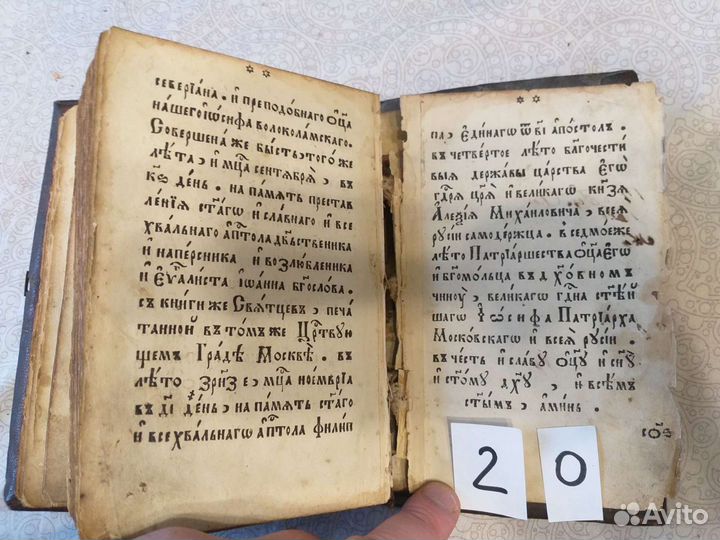 севері́ѧна . и҆ преподо́бнаго ѻ҆ц҃а
на́шегѡ і҆ѡ́сифа волокола́мскаго .
Совершена́ же бы́сть , того̀ же
лѣ́та , и҆ мцⷭ҇а септѧврїѧ̀ , въ
к҃ѕ де́нь . на па́мѧть преста́в
ле́нїѧ ст҃а́гѡ и҆ сла́внаго и҆ все
хва́льнаго а҆пⷭ҇тола дв҃ственника
и҆ напе́рсника и҆ возлю́бленика
и҆ є҆ѵⷢ҇а́листа і҆ѡа́нна бг҃осло́ва .
съ кни́ги же Свѧ́тцевъ , печа́
танной въ то́мъ же Црⷭ҇твꙋю
щемъ Гра́дѣ Москвѣ̀ . въ
лѣ́то ҂зрн҃з е , мцⷭ҇а ноемврі́а
въ д҃і де́нь , на па́мѧть ст҃а́гѡ
и҆ всехва́льнагѡ а҆пⷭ҇тола фили́п
па , є҆ди́нагѡ ѿ в҃і а҆по́столъ .
въ четве́ртое лѣ́то бл҃гочести́
выѧ держа́вы ца́рства є҆гѡ̀
гдⷭ҇рѧ цр҃ѧ̀ и҆ вели́кагѡ кн҃зѧ
Алеѯі́ѧ Миха́йловича , всеѧ̀
рꙋсі́и самоде́ржца . въ седмо́е же
лѣ́то Патрїа́ршества ѻ҆ц҃а̀ є҆гѡ̀
и҆ бг҃омо́льца въ дꙋхо́вномъ
чи́нꙋ , вели́кагѡ гдⷭ҇на ст҃ѣ́й
шагѡ І҆ѡ́сифа Патрїа́рха
Моско́вскагѡ и҆ всеѧ̀ рꙋсі́и .
въ че́сть и҆ сла́вꙋ ѻ҆ц҃ꙋ̀ и҆ сн҃ꙋ
и҆ ст҃о́мꙋ дх҃ꙋ , и҆ всѣ́мъ
ст҃ы́мъ , а҆ми́нь .
20
Avito